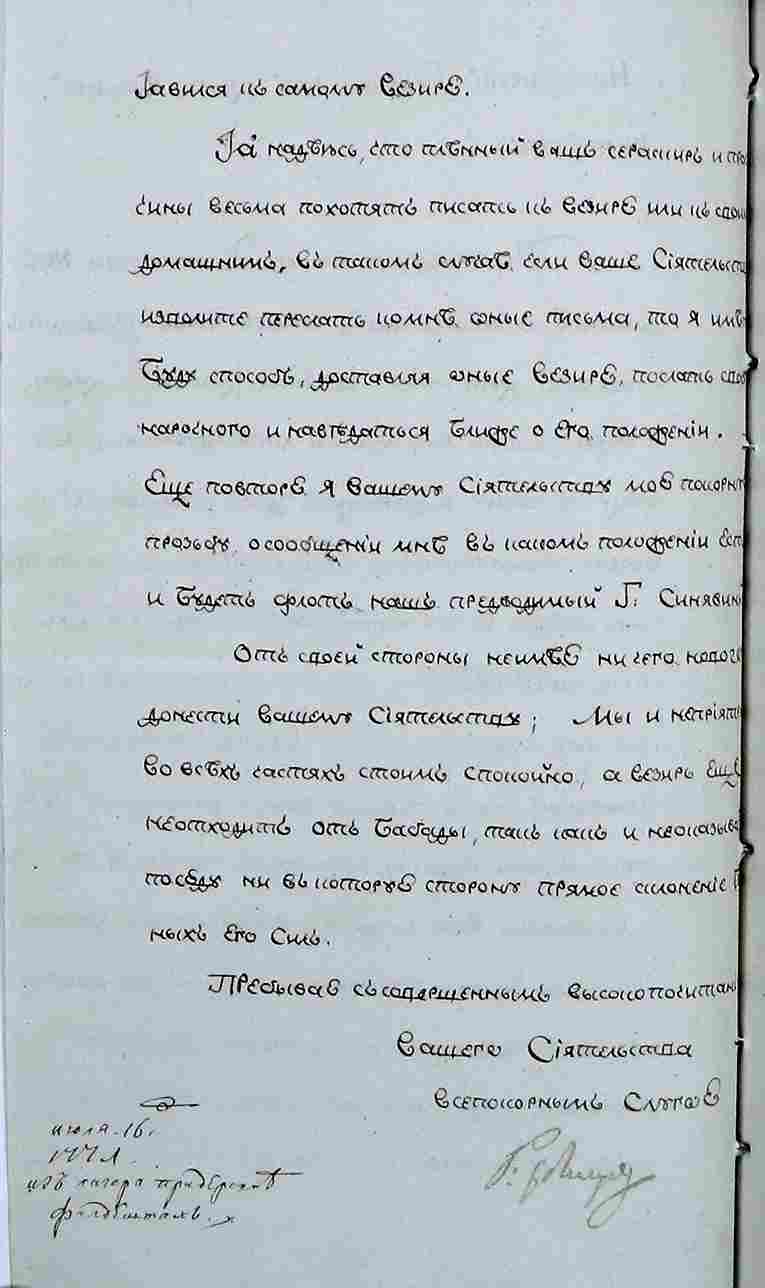 явился къ самому везирю.
Я надѣюсь, что плѣнный вашъ сераскиръ и про
чины весьма похотятъ писать къ везирю или къ свои
домашнимъ, въ такомъ случаѣ если ваше Сіятельств
изволите переслать ко мнѣ оные письма, то я имѣ
буду способъ, доставляя оные везирю, послать сво
нарочного и навѣдаться ближе о его положеніи.
Еще повторю я вашему Сіятельству мою покорн
прозьбу о сообщеніи мнѣ въ какомъ положеніи ест
и будетъ флотъ нашъ предводимый Г: Синявин
Отъ своей стороны неимѣю ни чего надоч
донести вашему Сіятельству; Мы и непріят
во всѣхъ частяхъ стоимъ спокойно, а везирь еще
неотходитъ отъ Бабады, такъ какъ и неоказыва
посюду ни въ которую сторону прямое склоненіе
ныхъ его силъ.
Пребываю съ совершеннымъ высокопочитан
вашего Сіятельства
всепокорнымъ слугою
июля 16.
1771.
изъ лагера при деревнѣ